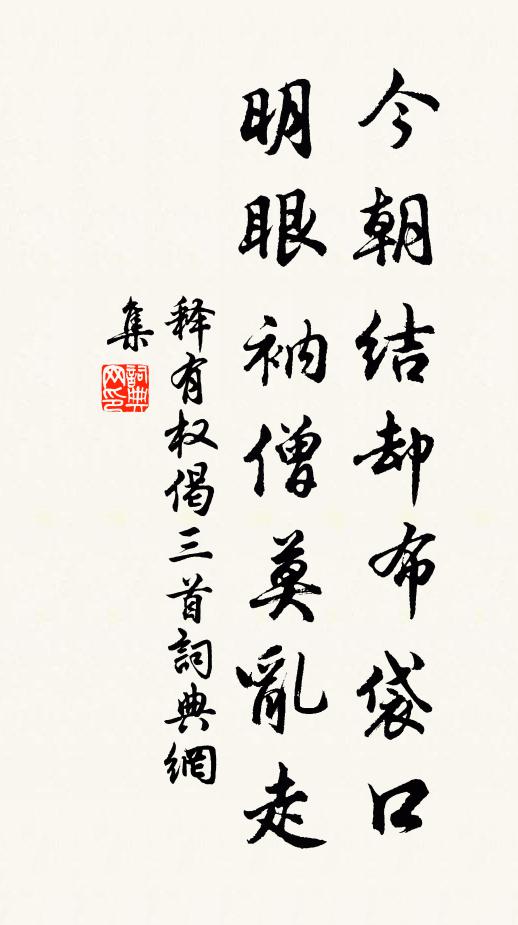 今朝结却布袋口
明眼衲僧莫亂走
释有权偈三首詞典網
集
詞典
网印